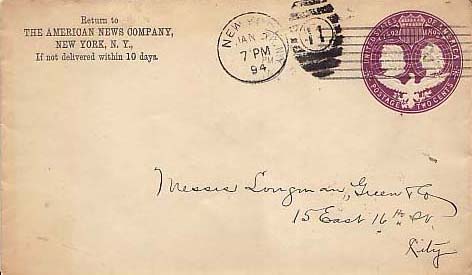 Return to
THE AMERICAN NEWS COMPANY,
NEW YORK, N. Y.,
If not delivered within 10 days.
NEW YORK, N.Y.
JAN
7 PM
94
11
UNITED STATES OF AMERICA
1492 1892
POSTAGE TWO CENTS
Messrs Longman, Green & Co
15 East 16th St.
City